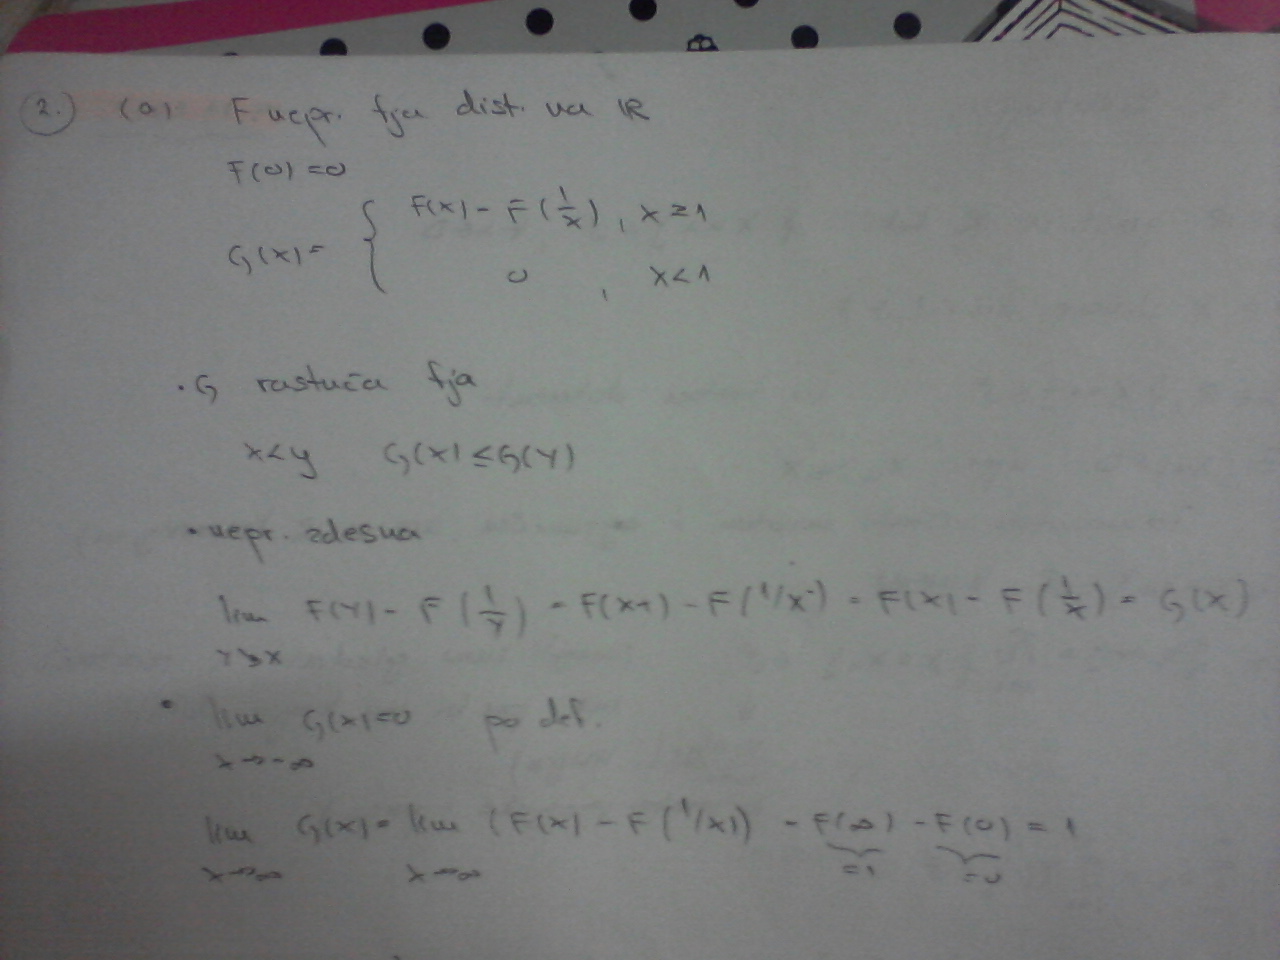 2. (a) F nepr. fja dist. na ℝ
F(0)=0
G(x)= { F(x) - F(1/x), x≥1
0 , x<1
• G rastuća fja
x<y G(x)≤G(y)
• nepr. zdesna
lim F(y) - F(1/y) = F(x+) - F(1/x-) = F(x) - F(1/x) = G(x)
y↘x
• lim G(x)=0 po def.
x→-∞
lim G(x)= lim (F(x) - F(1/x)) = F(∞) - F(0) = 1
x→∞ x→∞ =1 =0